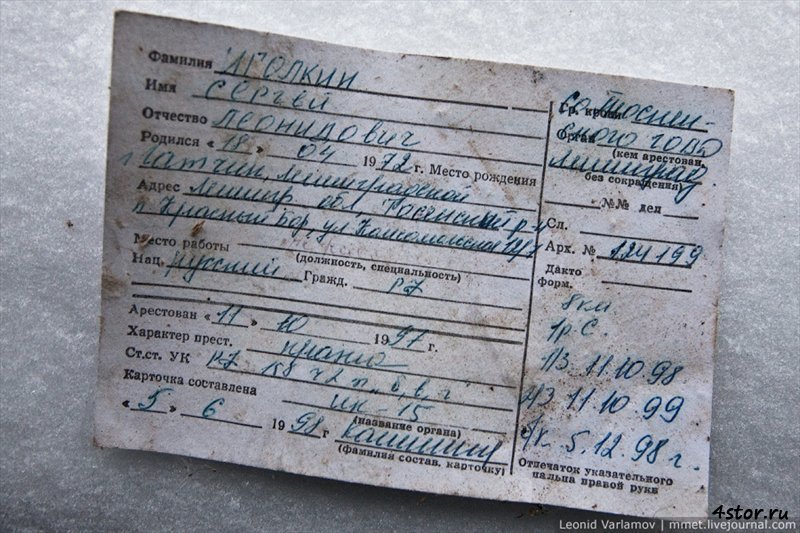 Фамилия Иголкин
Имя Сергей
Отчество Леонидович
Родился « 18 » 04 1972 г. Место рождения
г. Гатчина, Ленинградской
Адрес Ленингр. обл., Тосненский р-н
п. Красный Бор, ул. Комсомольская
Место работы
(должность, специальность)
Нац. русский Гражд. РФ
Арестован « 11 » 10 1997 г.
Характер прест. кража
Ст.ст. УК РФ 158 ч 2 п. "б, в, г"
Карточка составлена ИК-15
(название органа)
« 5 » 6 1998 г
(фамилия состав. карточку)
Гр. крови
Орган
(кем арестован,
без сокращения)
№№ дел
Сл.
Арх. № 124199
Дакто
форм.
1р. С.
11.10.98
11.10.99
5.12.98 г.
Отпечаток указательного
пальца правой руки
4stor.ru
Leonid Varlamov | mmet.livejournal.com